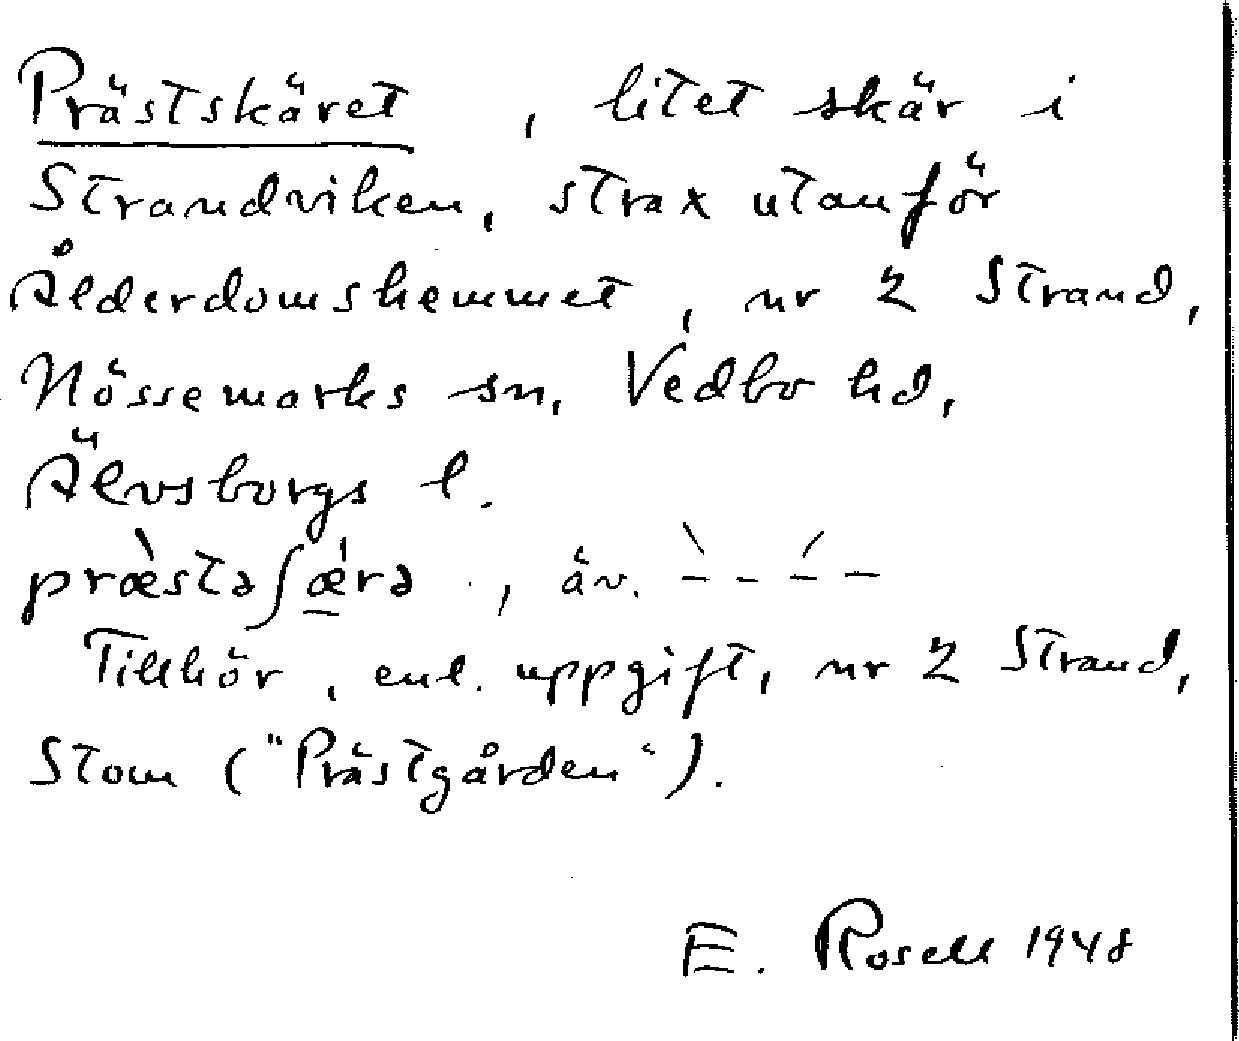 Prästskäret, litet skär i
Strandviken, strax utanför
Ålderdomshemmet, nr 2 Strand,
Nössemarks sn, Vedbo hd,
Älvsborgs l.
præ̀stəʃǽ̠rə, äv. –̀ - –́ –
Tillhör, enl. uppgift, nr 2 Strand,
Stom ("Prästgården").
E. Rosell 1948